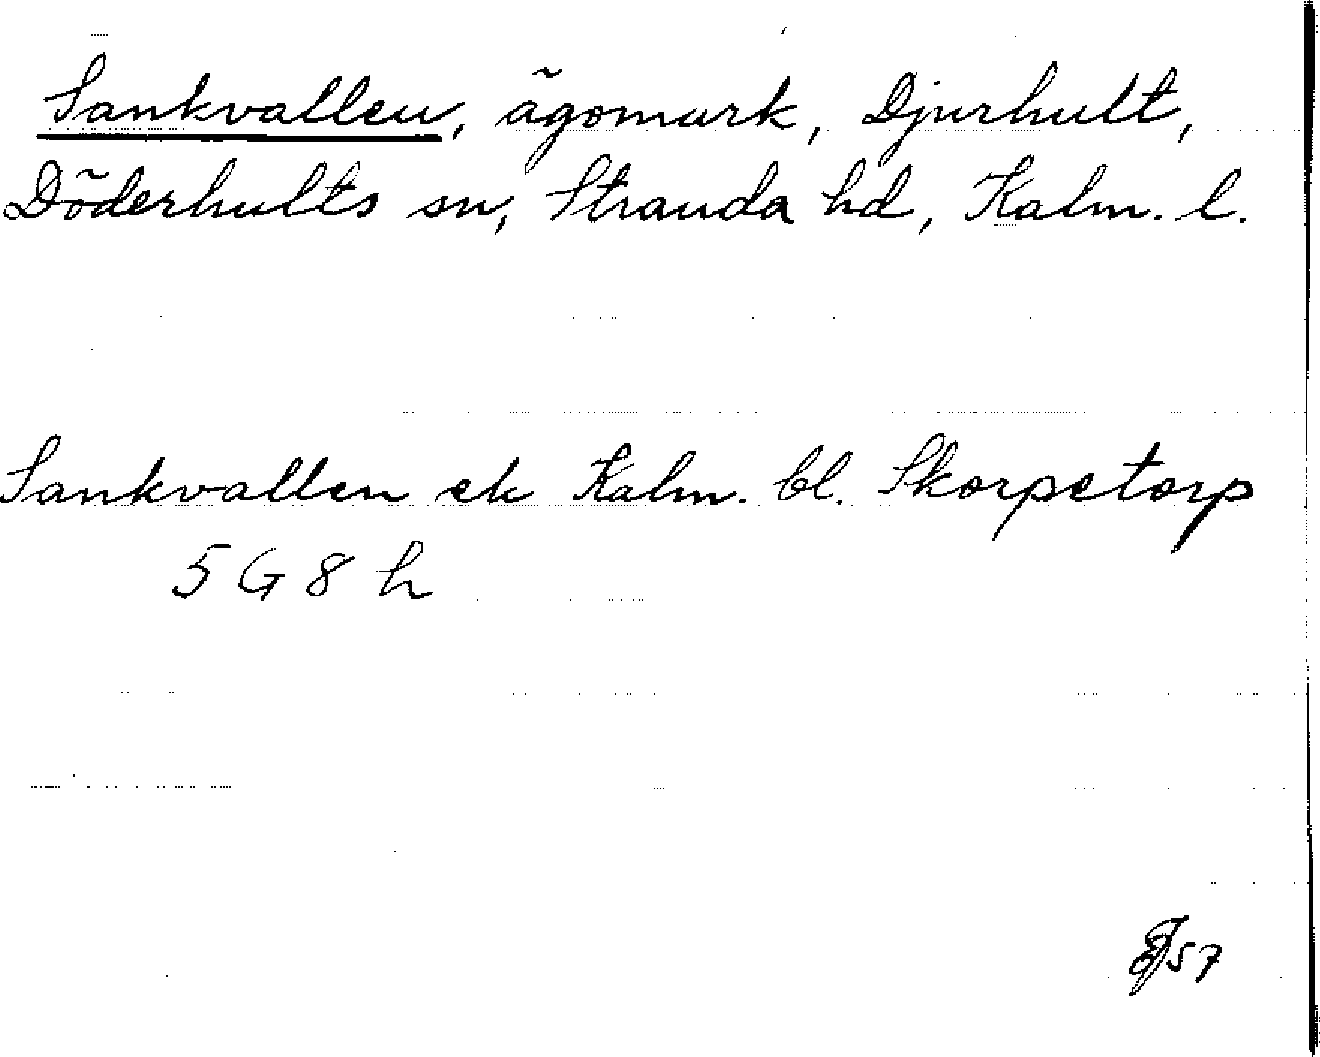 Sankvallen, ägomark, Djurhult,
Döderhults sn, Stranda hd, Kalm. l.
Sankvallen ek Kalm. bl. Skorpetorp
5 G 8 h
57